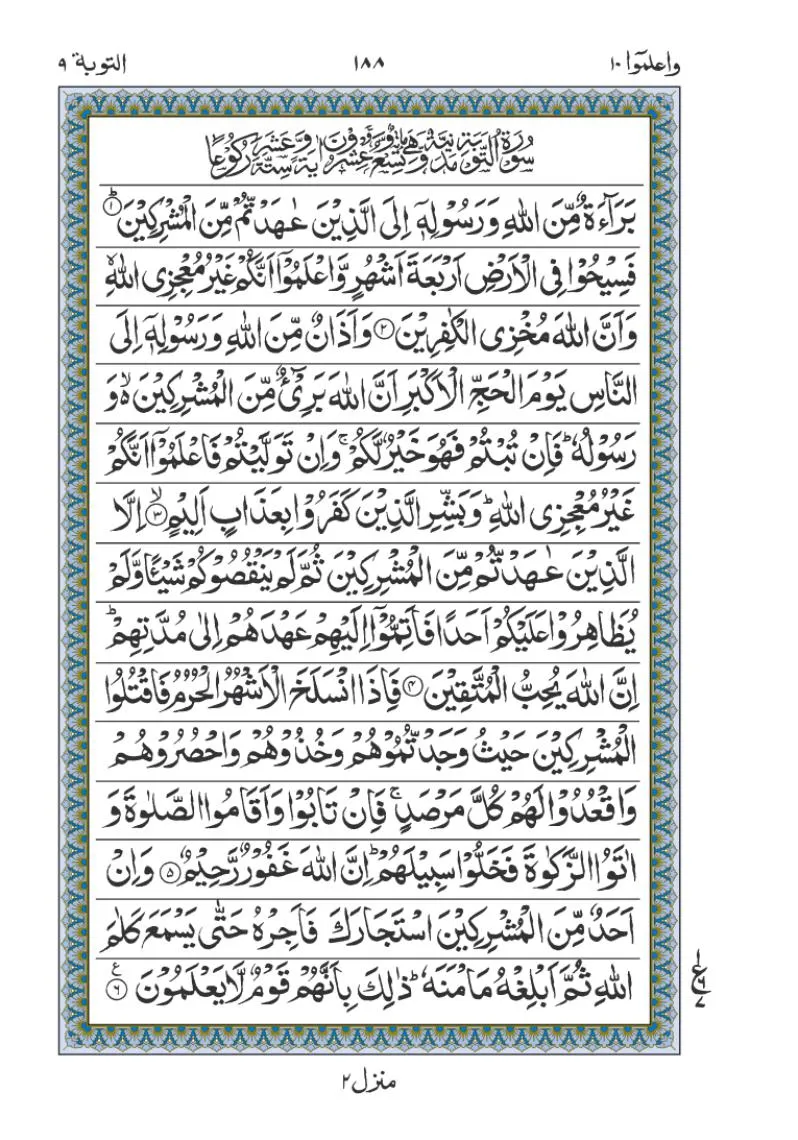 واعلموٓا ١٠ ١٨٨ التوبة ٩
سُوْرَةُ التَّوْبَةِ مَدَنِيَّةٌ وَّهِيَ مِائَةٌ وَّتِسْعٌ وَّعِشْرُوْنَ اٰيَةً وَّسِتَّةَ عَشَرَ رُكُوْعًا
بَرَآءَةٌ مِّنَ اللّٰهِ وَرَسُوْلِهٖۤ اِلَى الَّذِيْنَ عٰهَدْتُّمْ مِّنَ الْمُشْرِكِيْنَؕ ۱
فَسِيْحُوْا فِى الْاَرْضِ اَرْبَعَةَ اَشْهُرٍ وَّاعْلَمُوْۤا اَنَّكُمْ غَيْرُ مُعْجِزِى اللّٰهِۙ
وَاَنَّ اللّٰهَ مُخْزِى الْكٰفِرِيْنَ ۲ وَاَذَانٌ مِّنَ اللّٰهِ وَرَسُوْلِهٖۤ اِلَى
النَّاسِ يَوْمَ الْحَجِّ الْاَكْبَرِ اَنَّ اللّٰهَ بَرِىْٓءٌ مِّنَ الْمُشْرِكِيْنَ ۙ۬ وَ
رَسُوْلُهٗؕ فَاِنْ تُبْتُمْ فَهُوَ خَيْرٌ لَّكُمْۚ وَاِنْ تَوَلَّيْتُمْ فَاعْلَمُوْۤا اَنَّكُمْ
غَيْرُ مُعْجِزِى اللّٰهِؕ وَبَشِّرِ الَّذِيْنَ كَفَرُوْا بِعَذَابٍ اَلِيْمٍۙ ۳ اِلَّا
الَّذِيْنَ عٰهَدْتُّمْ مِّنَ الْمُشْرِكِيْنَ ثُمَّ لَمْ يَنْقُصُوْكُمْ شَيْـًٔا وَّلَمْ
يُظَاهِرُوْا عَلَيْكُمْ اَحَدًا فَاَتِمُّوْۤا اِلَيْهِمْ عَهْدَهُمْ اِلٰى مُدَّتِهِمْؕ
اِنَّ اللّٰهَ يُحِبُّ الْمُتَّقِيْنَ ۴ فَاِذَا انْسَلَخَ الْاَشْهُرُ الْحُرُمُ فَاقْتُلُوا
الْمُشْرِكِيْنَ حَيْثُ وَجَدْتُّمُوْهُمْ وَخُذُوْهُمْ وَاحْصُرُوْهُمْ
وَاقْعُدُوْا لَهُمْ كُلَّ مَرْصَدٍۚ فَاِنْ تَابُوْا وَاَقَامُوا الصَّلٰوةَ وَ
اٰتَوُا الزَّكٰوةَ فَخَلُّوْا سَبِيْلَهُمْؕ اِنَّ اللّٰهَ غَفُوْرٌ رَّحِيْمٌ ۵ وَاِنْ
اَحَدٌ مِّنَ الْمُشْرِكِيْنَ اسْتَجَارَكَ فَاَجِرْهُ حَتّٰى يَسْمَعَ كَلٰمَ
اللّٰهِ ثُمَّ اَبْلِغْهُ مَاْمَنَهٗؕ ذٰلِكَ بِاَنَّهُمْ قَوْمٌ لَّا يَعْلَمُوْنَ ۶ ع
۱
ع ۶
۷
منزل ۲